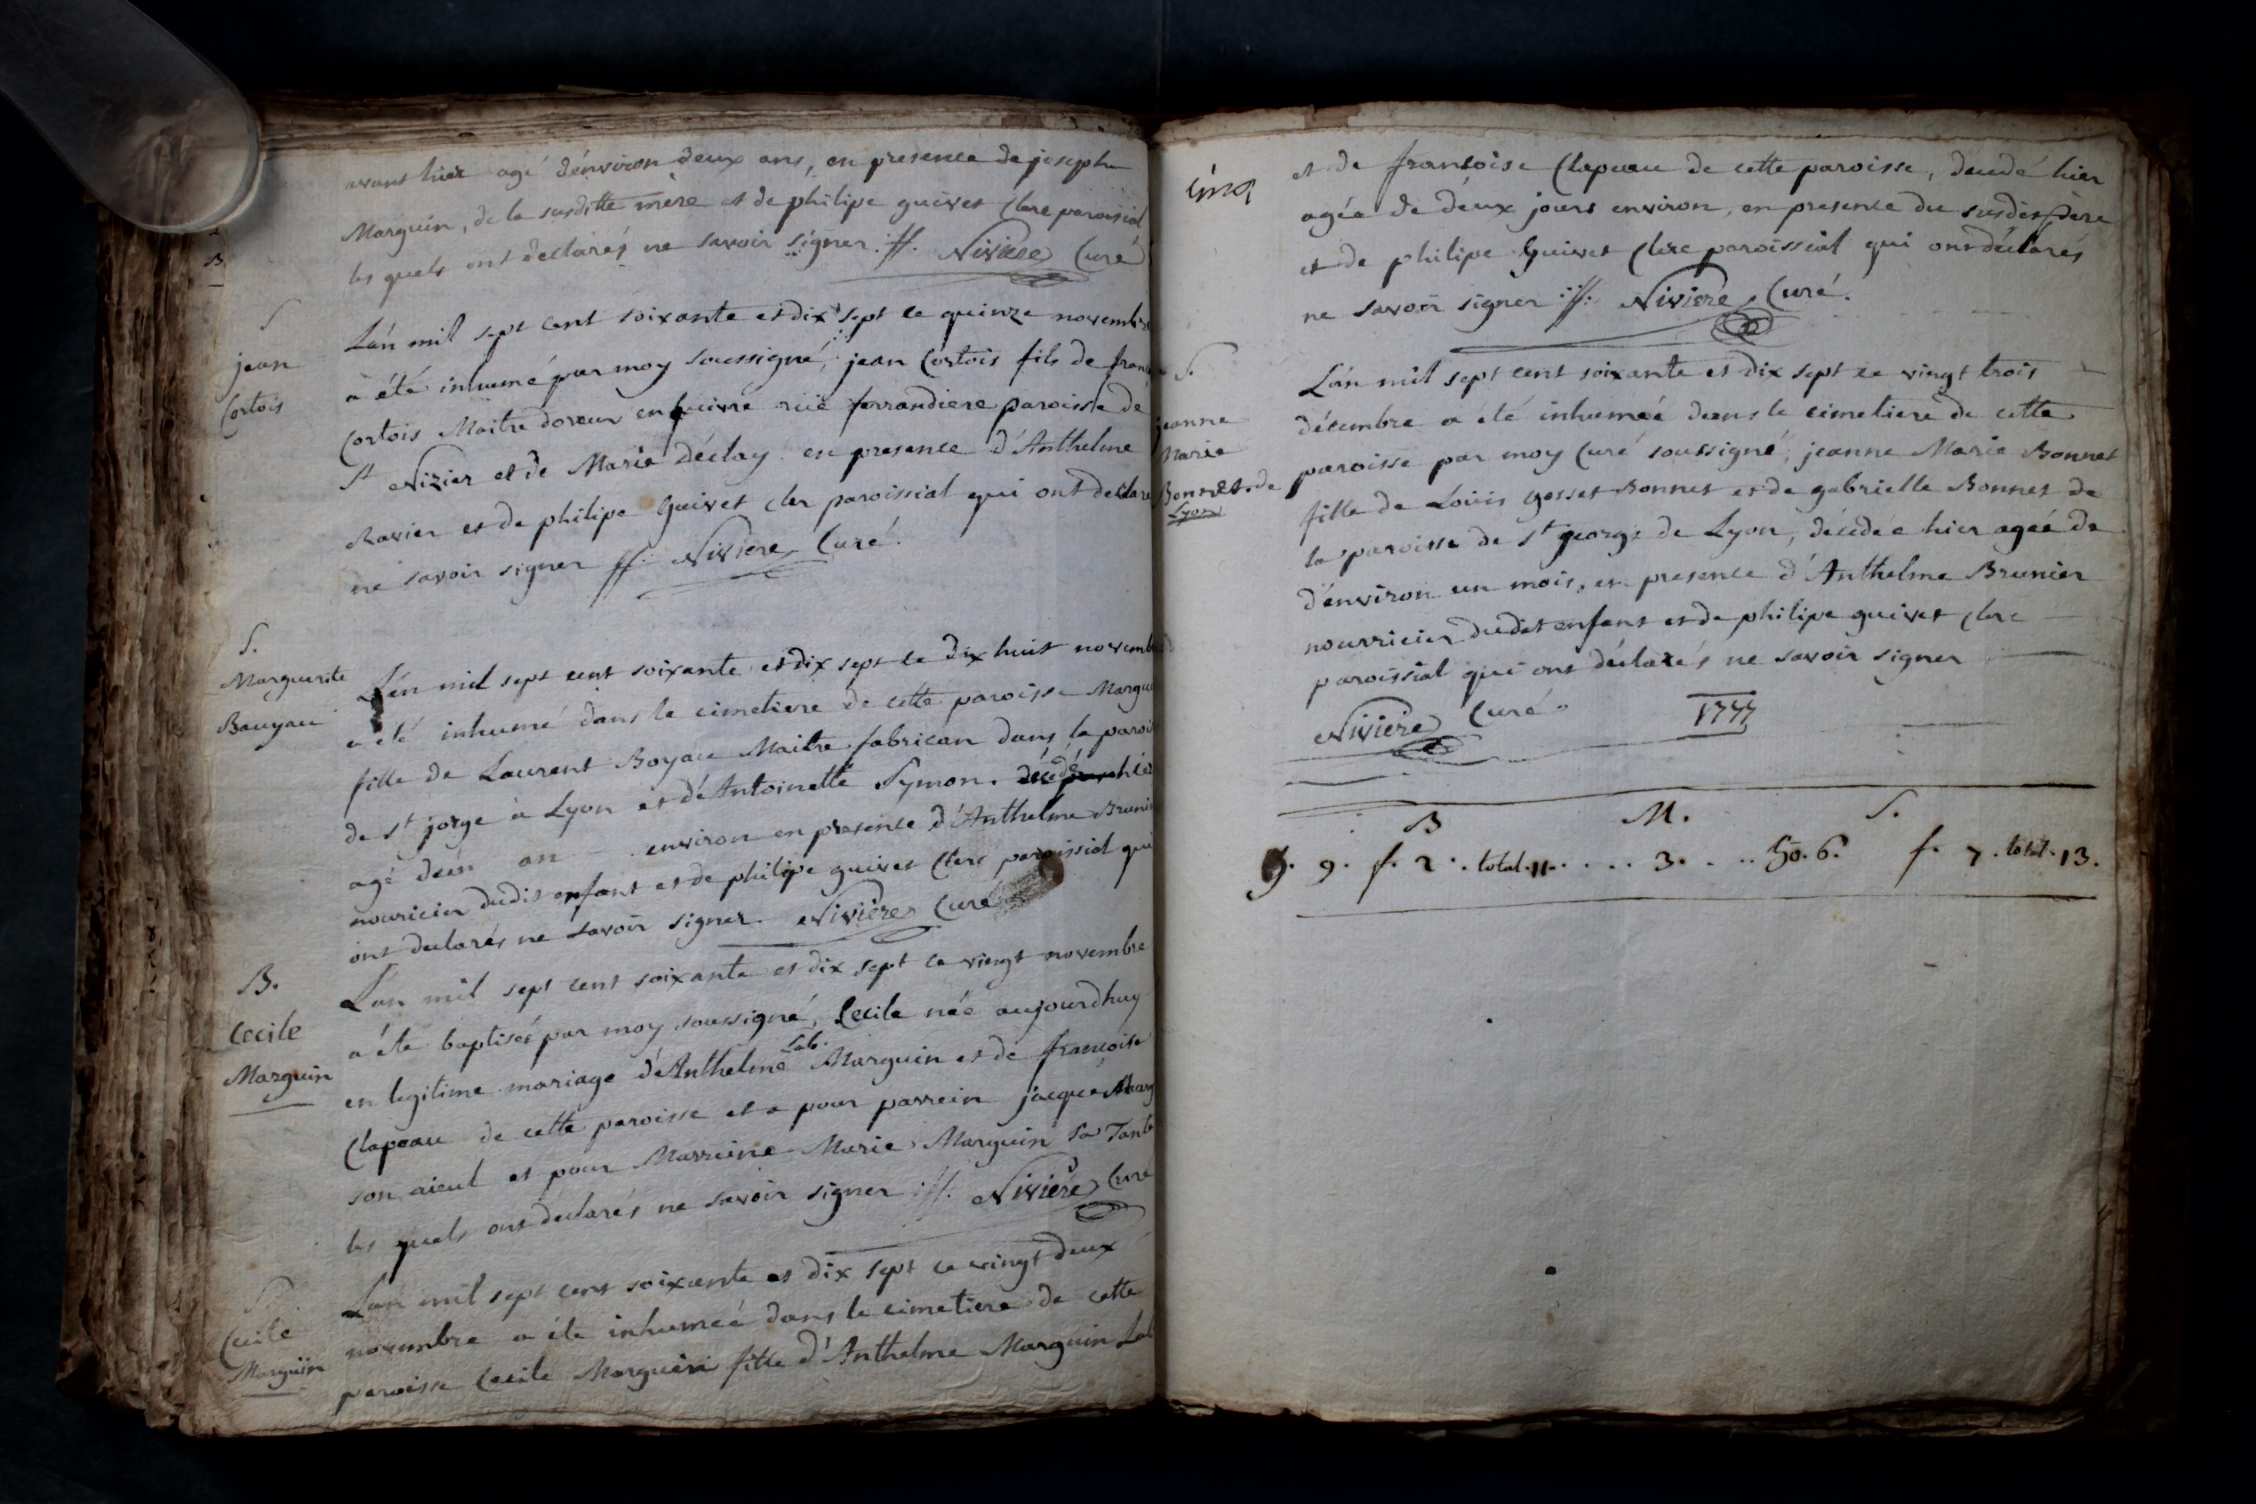 avant hier agé d'énviron deux ans, en presence de joseph
Marguin, de la susditte mere et de philipe guivet Clerc paroissial
les quels ont déclarés ne savoir signer ://. Niviere Curé
S
jean
Cortois
L'án mil sept cent soixante et dix sept le quinze novembre
a été inhumé par moy soussigné, jean Cortois fils de
Cortois Maitre doreur en cuivre ruë ferrandiere paroisse de
St Nizier et de Marie Déclay en presence d'Anthelme
Ravier et de philipe Guivet cler paroissial qui ont declaré
ne savoir signer //. Niviere, Curé.
S.
Marguerite
Bauyau
L'én mil sept cent soixante et dix sept le dix huit novemb
a eté inhumé dans le cimetiere de cette paroisse Margue
fille de Laurent Boyau Maitre fabrican dans la paroi
de St jorge à Lyon et d'Antoinette Symon. décédé hier
agé deun an environ en presence d'Anthelme Brunie
nouricier dudit enfant et de philipe guivet Clerc paroissial qui
ont declarés ne savoir signer. Niviere, Curé
B.
Cecile
Marguin
L'an mil sept cent soixante et dix sept le vingt novembre
a éte baptiseé par moy soussigné, Cecile née aujourdhuy
en legitime mariage d'Anthelme Lab. Marguin et de françoise
Clapeau de cette paroisse et a pour parrein jacque Marg
son aieul et pour Marreine Marie Marguin sa Tante
les quels ont déclarés ne savoir signer ://. Niviere, Curé
S
Cecile
Marguin
L'an mil sept cent soixante et dix sept le vingt deux
novembre a éte inhumeé dans le cimetiere de cette
paroisse Cecile Marguin fille d'Anthelme Marguin Lab
cinq
et de francoise Clapeau de cette paroisse, decedé hier
agéé de deux jours environ, en presence du susdit pere
et de philipe Guivet Clerc paroissial qui ont déclarés
ne savoir signer ://: Niviere, Curé.
S.
jeanne
Marie
Bonnet de
Lyon
L'án mil sept cent soixante et dix sept le vingt trois
décembre a été inhumeé dans le cimetiere de cette
paroisse par moy Curé soussigné, jeanne Marie Bonnet
fille de Loüis Gosset Bonnet et de gabrielle Bonnet de
la paroisse de St george de Lyon, décedee hier ageé de
d'énviron un mois, en presence d'Anthelme Brunier
nourricier dudit enfant et de philipe guivet Clerc
paroissial qui ont déclarés ne savoir signer
Niviere, Curé. 1777
B M. S.
g. 9. f. 2. total. 11. . . . . 3. . . . go. 6. f. 7. total. 13.